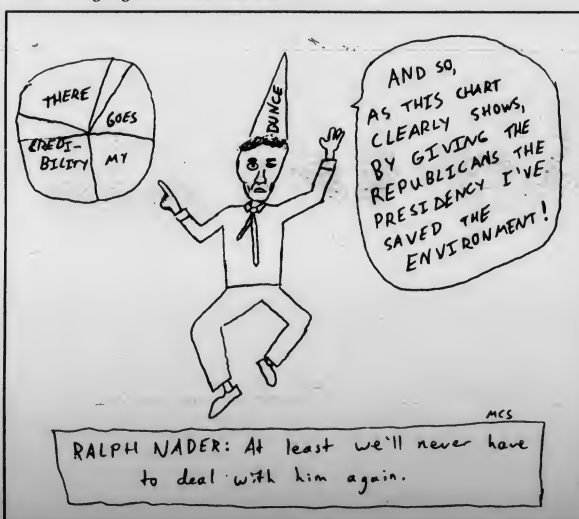 THERE
GOES
CREDI-
BILITY
MY
DUNCE
AND SO,
AS THIS CHART
CLEARLY SHOWS,
BY GIVING THE
REPUBLICANS THE
PRESIDENCY I'VE
SAVED THE
ENVIRONMENT!
MCS
RALPH NADER: At least we'll never have
to deal with him again.